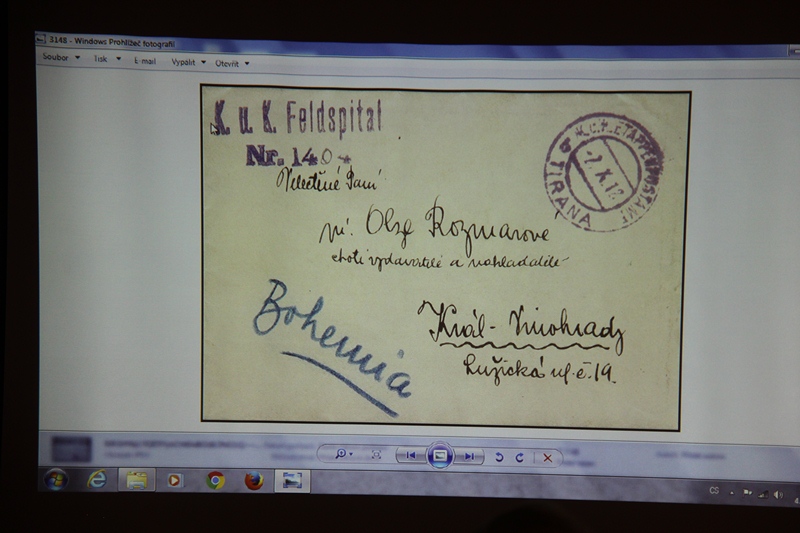 3148 - Windows Prohlížeč fotografií
Soubor Tisk E-mail Vypálit Otevřít
K. u. K. Feldspital
Nr. 140
K.u.K. ETAPPENPOSTAMT
-2.X.18
TIRANA
Velectěné Paní
pí. Olze Rozmarové
choti vydavatele a nakladatele
Bohemia
Král-Vinohrady
Lužická ul. č. 19.
CS